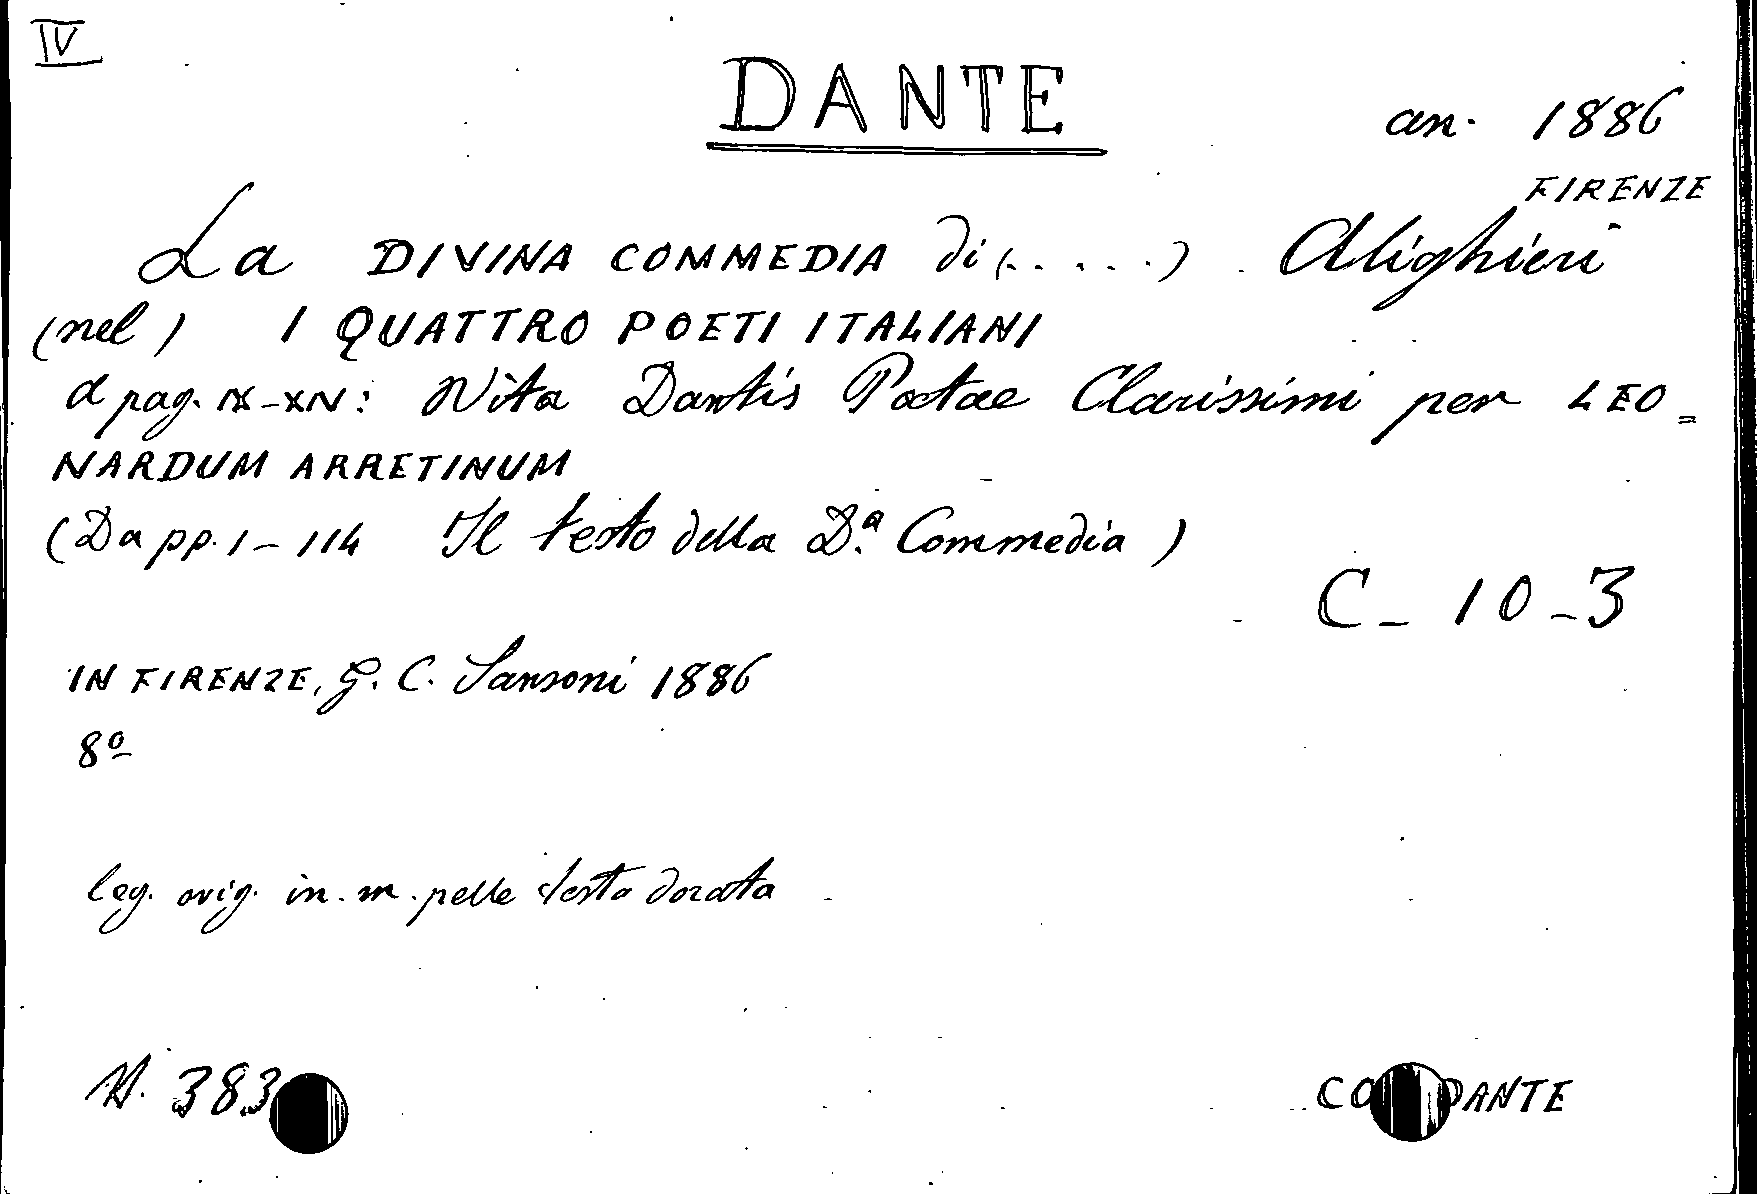 IV
DANTE
an. 1886
FIRENZE
La DIVINA COMMEDIA di (.....) Alighieri
(nel) I QUATTRO POETI ITALIANI
a pag. IX-XIV: Vita Dantis Poetae Clarissimi per LEO=
NARDUM ARRETINUM
(Da pp. 1-114 Il testo della D.ª Commedia)
C-10-3
IN FIRENZE, G. C. Sansoni 1886
8º
leg. orig. in. m. pelle testa dorata
N. 383
DANTE